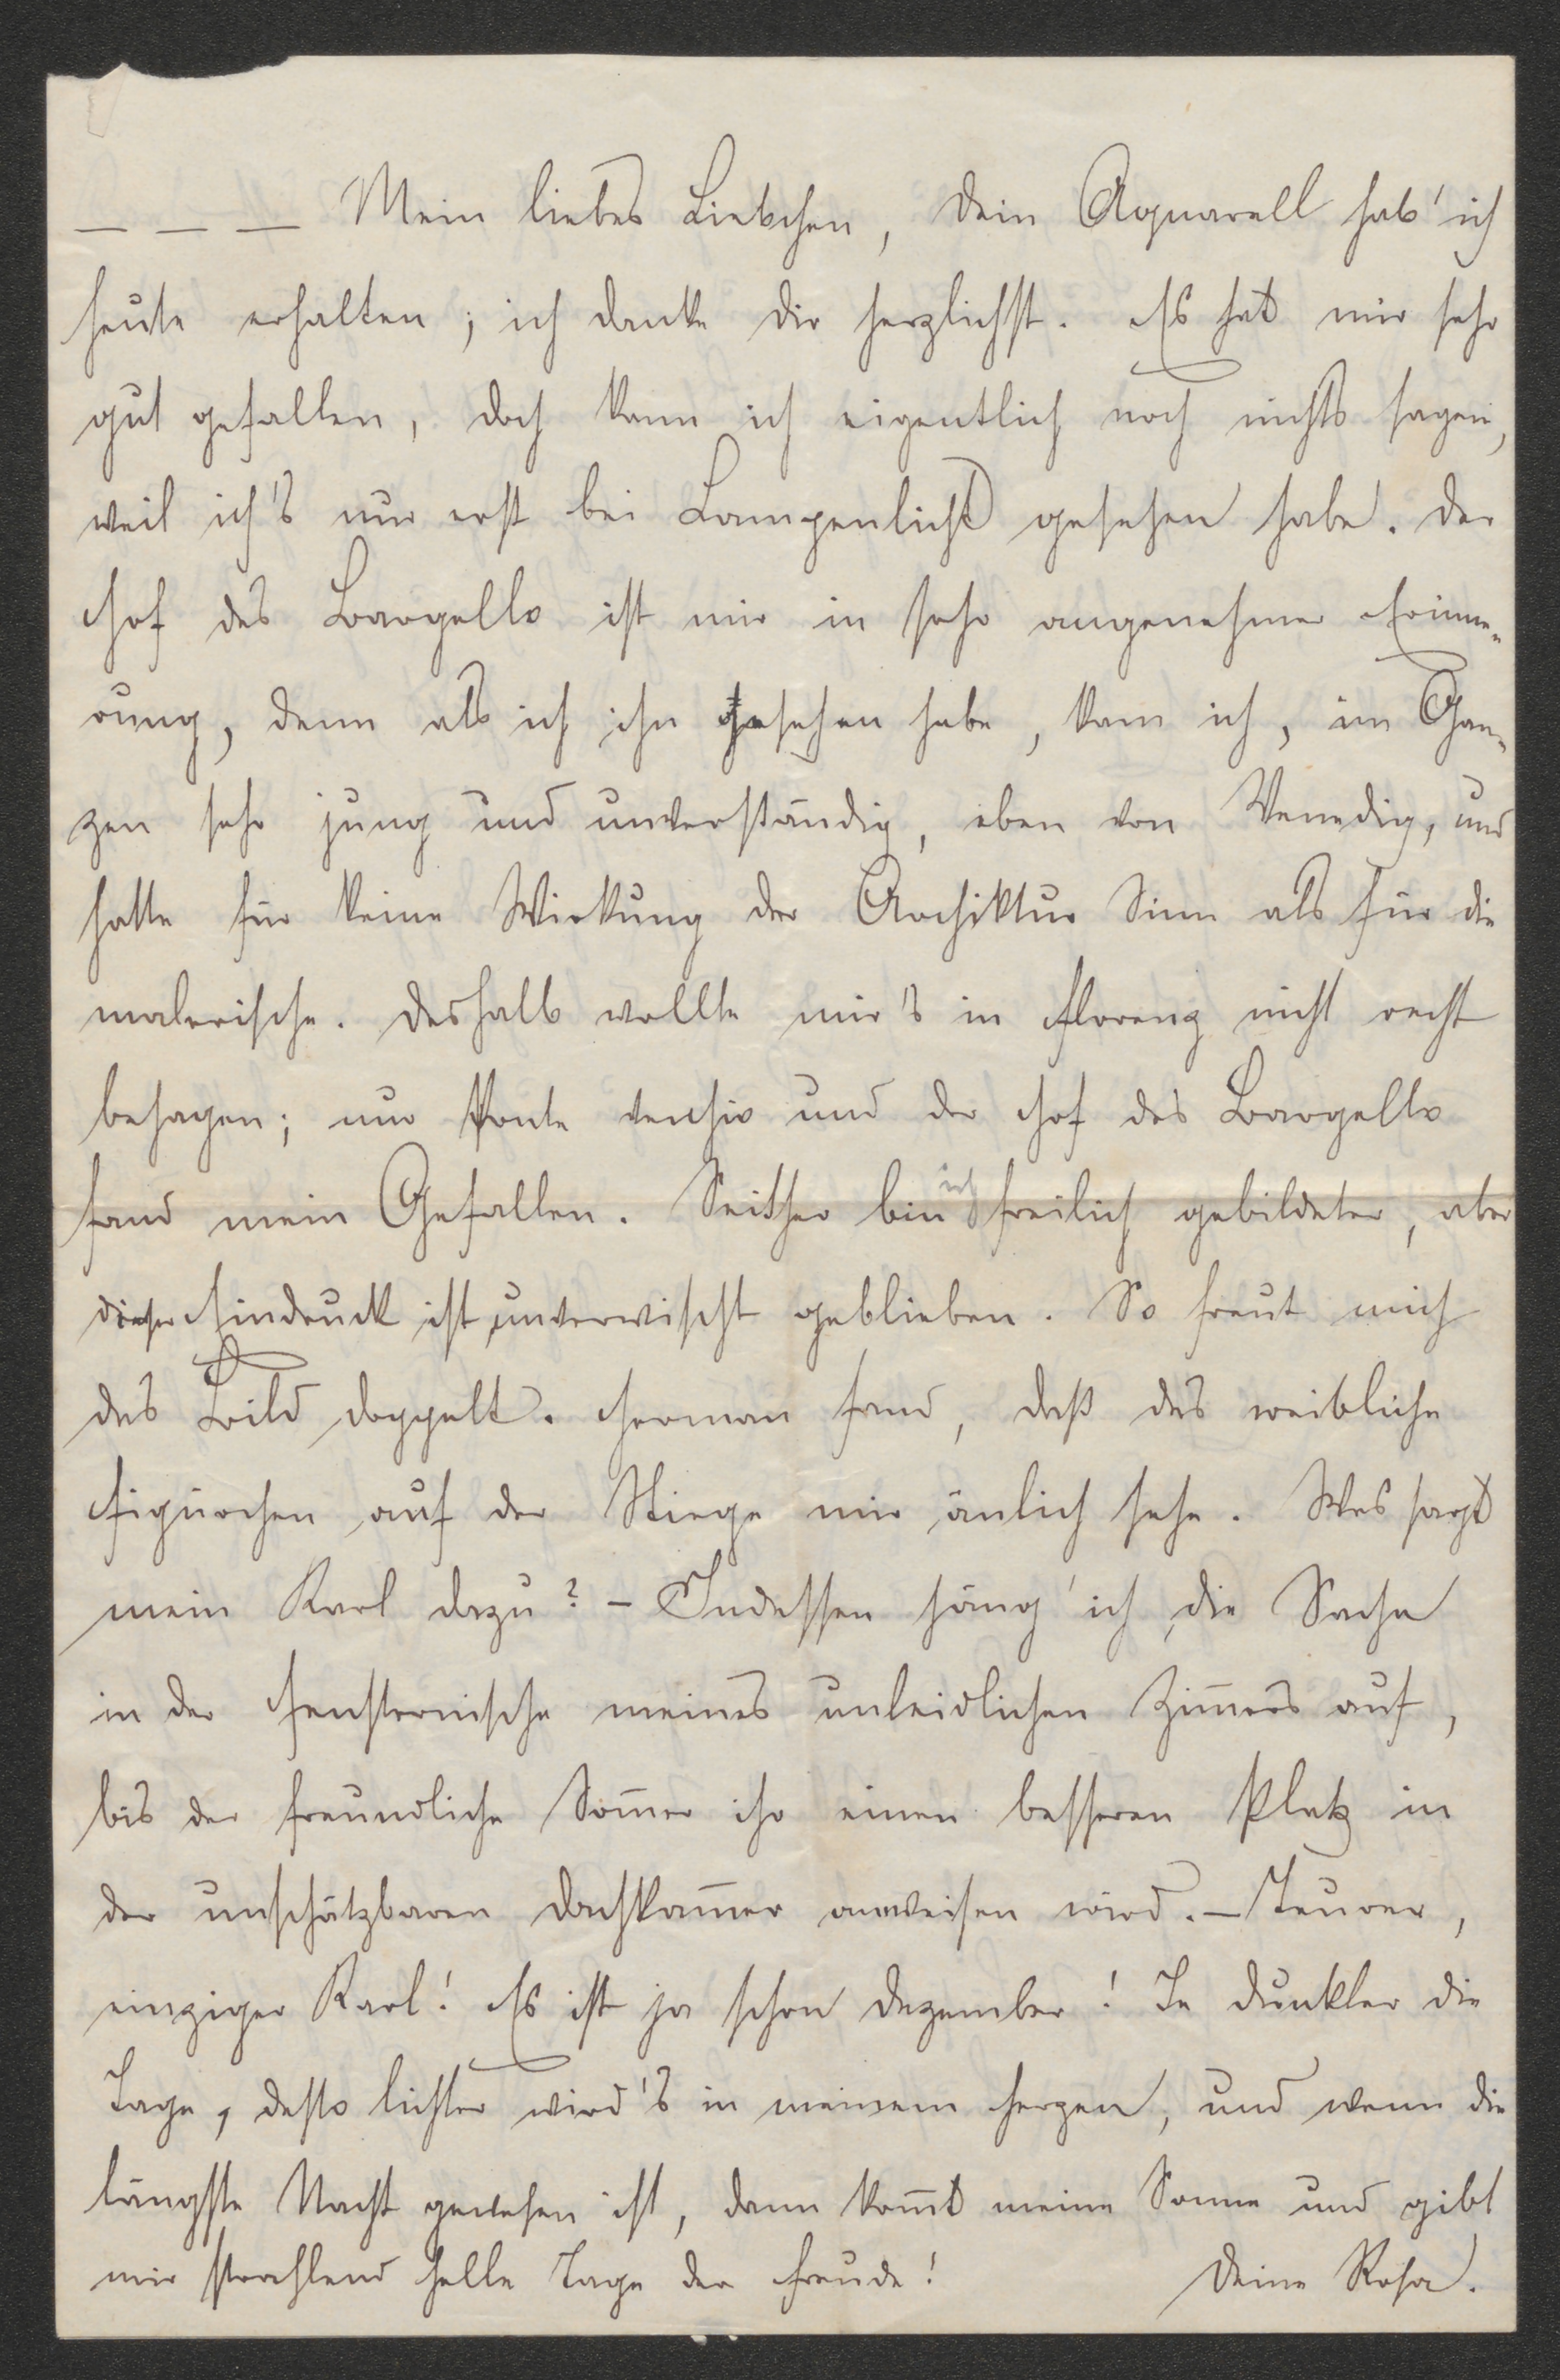 — — — Mein liebes Liebchen, Dein Aquarell hab' ich
heute erhalten; ich danke Dir herzlichst. Es hat mir sehr
gut gefallen, doch kann ich eigentlich noch nichts sagen,
weil ich's nur erst bei Lampenlicht gesehen habe. Der
Hof des Bargello ist mir in sehr angenehmer Erinne-
rung, denn als ich ihn gesehen habe, kam ich, im Gan-
zen sehr jung und unverständig, eben von Venedig, und
hatte für keine Wirkung der Architktur Sinn als für die
malerische. Deshalb wollte mir's in Florenz nicht recht
behagen; nur Ponte vechio und der Hof des Bargello
fand mein Gefallen. Seither bin ich freilich gebildeter, aber
dieser Eindruck ist unverwischt geblieben. So freut mich
das Bild doppelt. Herman fand, daß das weibliche
Figürchen auf der Stiege mir änlich sehe. Was sagt
mein Karl dazu? – Indessen häng' ich die Sache
in der Fensternische meines unleidlichen Zim̅ers auf,
bis der freundliche Som̅er ihr einen besseren Platz in
der unschätzbaren Dachkam̅er anweisen wird. – Teurer,
einziger Karl! Es ist ja schon Dezember! Je dunkler die
Tage, desto lichter wird's in meinem Herzen, und wenn die
längste Nacht gewesen ist, dann kom̅t meine Sonne und gibt
mir strahlend helle Tage der Freude! Deine Rosa.